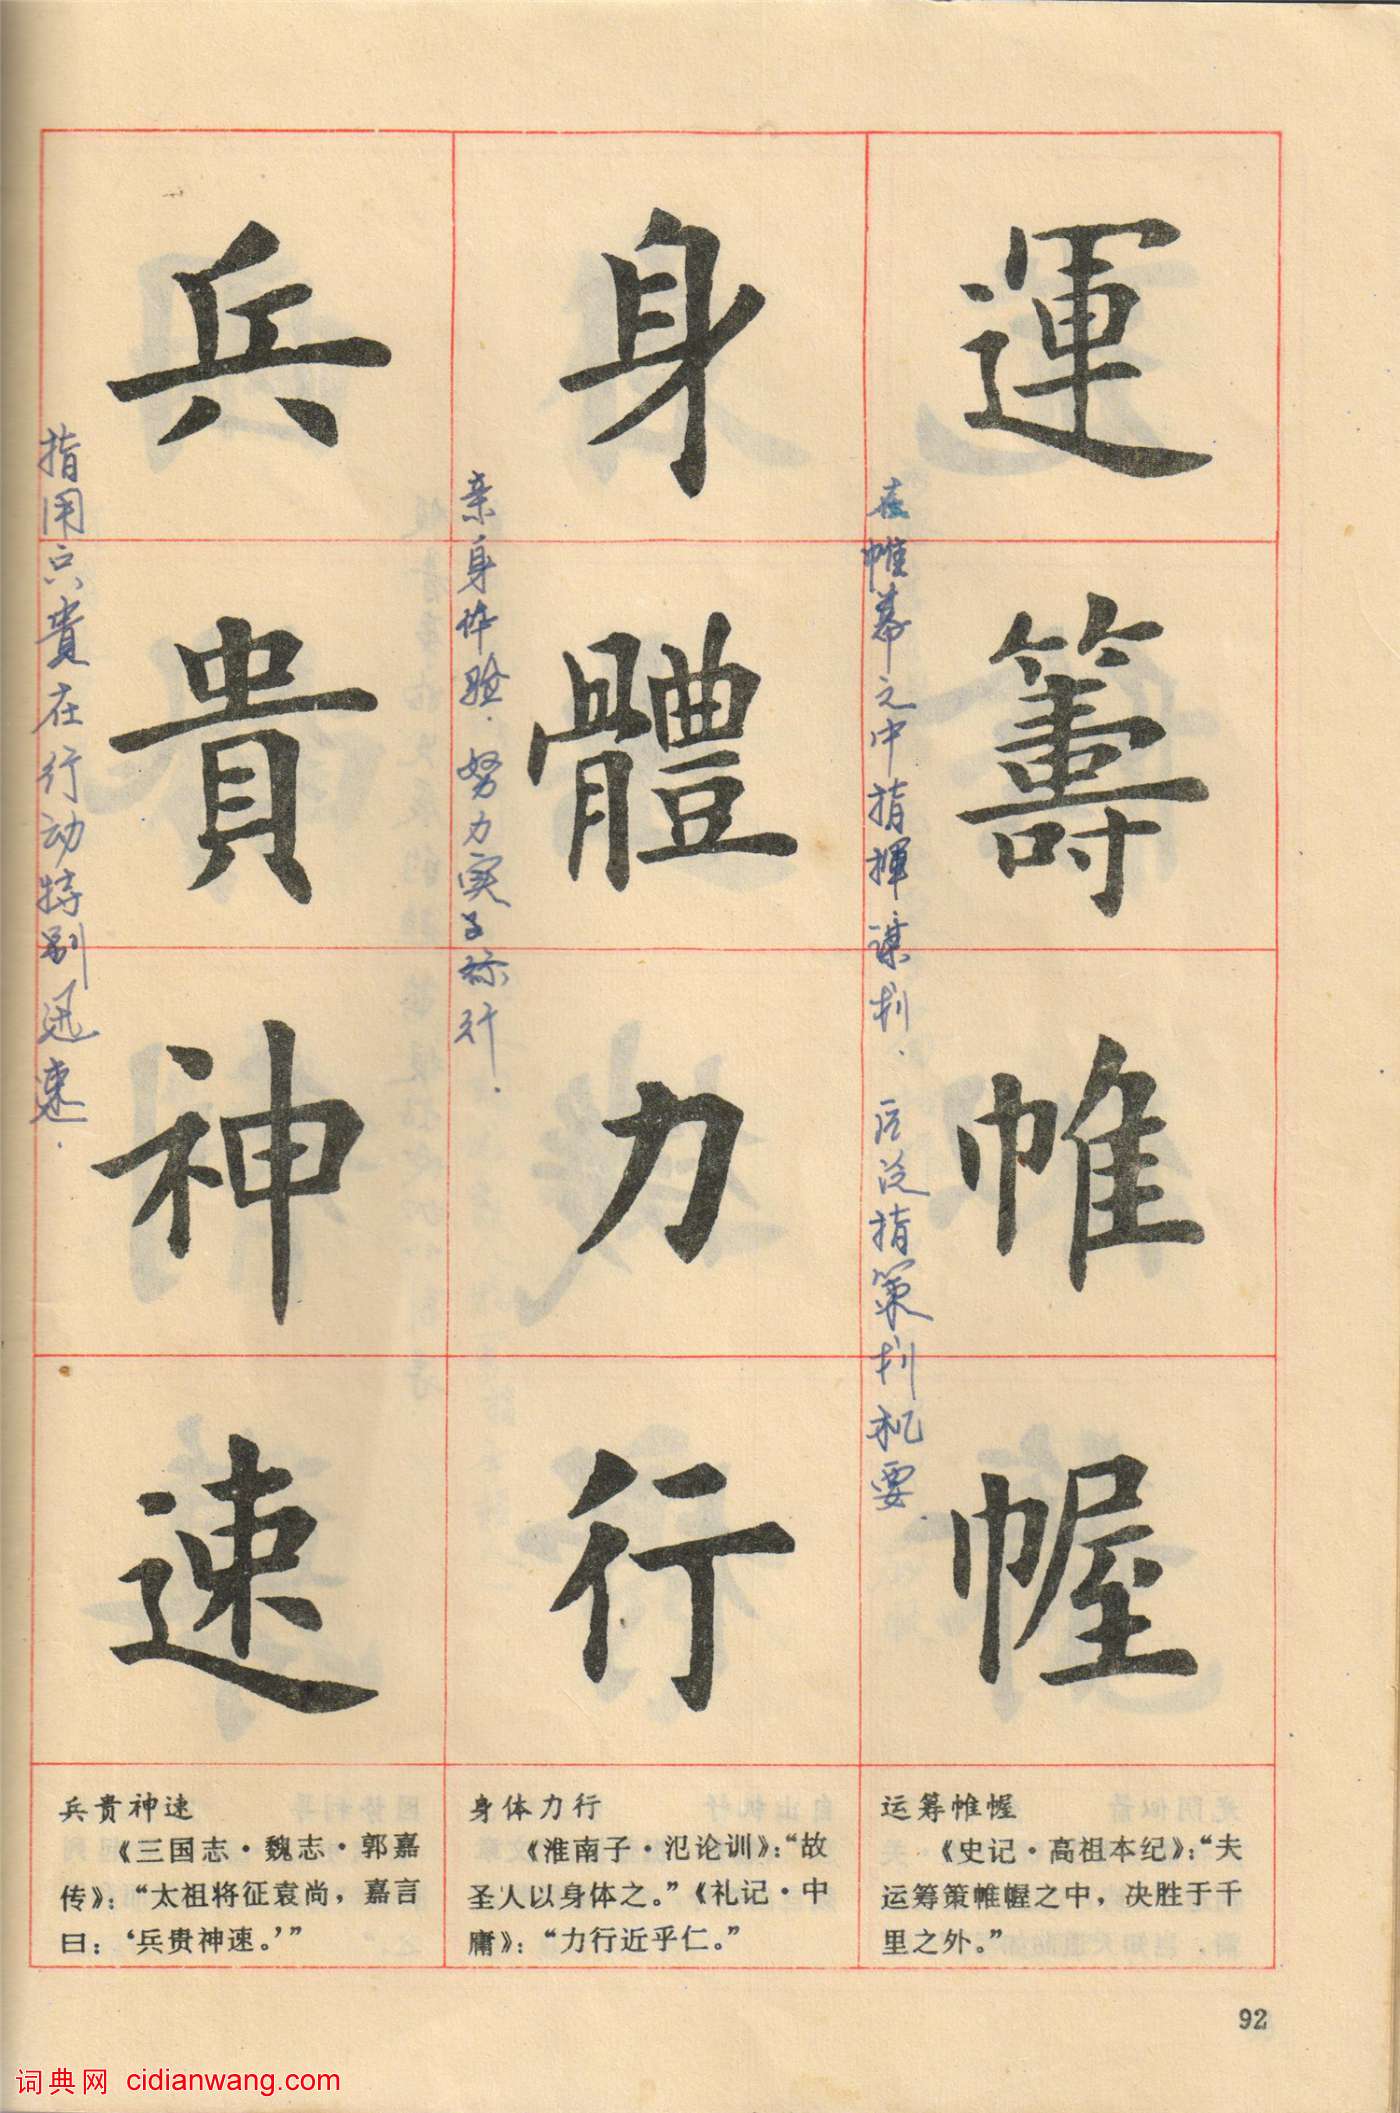 運籌帷幄
在帷幕之中指揮谋划．后泛指策划机要．
身體力行
亲身体验．努力实
兵貴神速
指用兵貴在行动特别迅速．
运筹帷幄
《史记·高祖本纪》：“夫
运筹策帷幄之中，决胜于千
里之外。”
身体力行
《淮南子·氾论训》：“故
圣人以身体之。”《礼记·中
庸》：“力行近乎仁。”
兵贵神速
《三国志·魏志·郭嘉
传》：“太祖将征袁尚，嘉言
曰：‘兵贵神速。’”
92
词典网 cidianwang.com